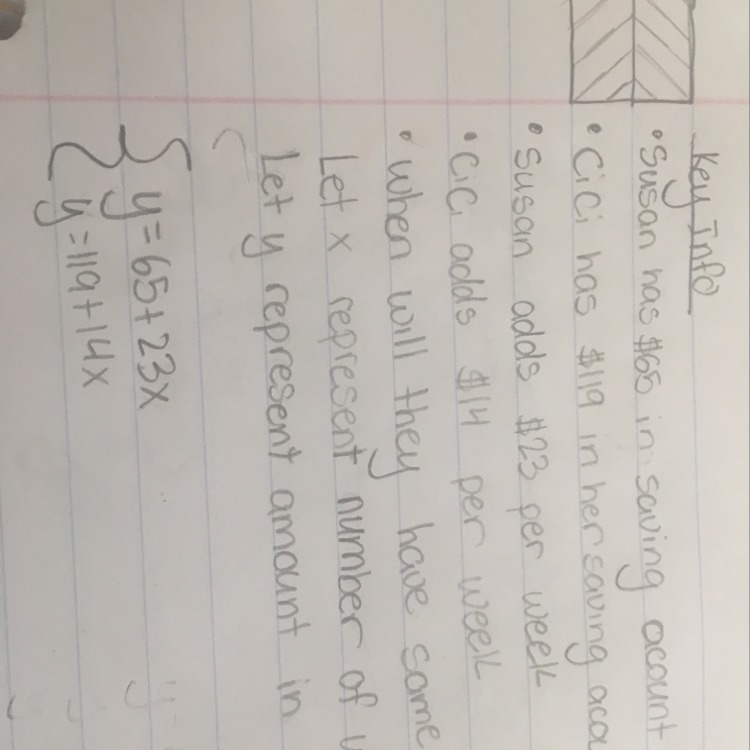 Key Info
• Susan has $65 in saving acount
• Cici has $119 in her saving
• Susan adds $23 per week
• Cici adds $14 per week
• when will they have same
Let x represent number of
Let y represent amount in
y = 65 + 23x
y = 119 + 14x